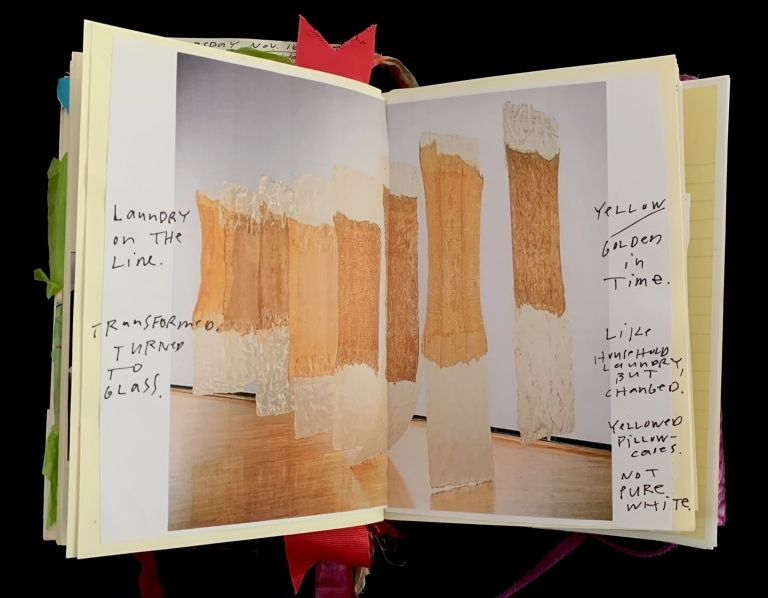 ESDAY NOV. 16
LAUNDRY
on THE
LINE.
TRANSFORMED.
TURNED
TO
GLASS.
YELLOW
GOLDEN
in
TIME.
LIKE
HOUSEHOLD
LAUNDRY,
BUT
CHANGED.
YELLOWED
PILLOW-
CASES.
NOT
PURE
WHITE.